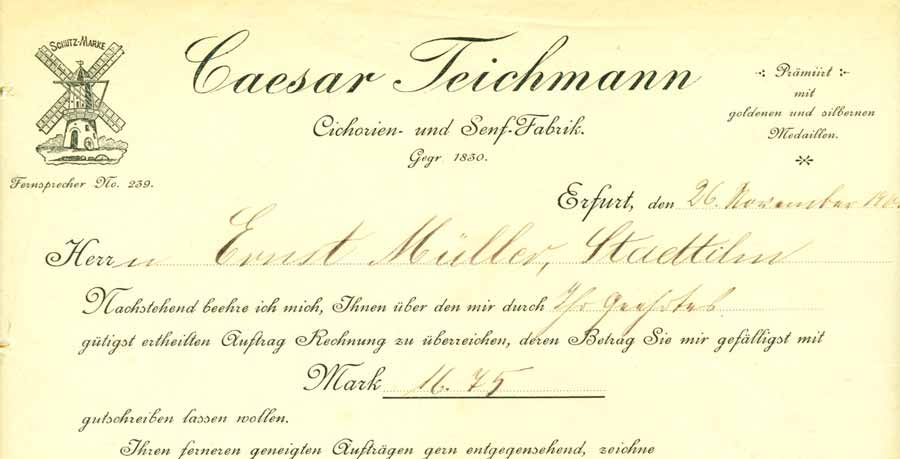 SCHUTZ-MARKE
Caesar Teichmann
Cichorien- und Senf-Fabrik.
Gegr 1830.
Prämiirt
mit
goldenen und silbernen
Medaillen.
Fernsprecher No. 239.
Erfurt, den 26. November
Herrn Ernst Müller, Stadtilm
Nachstehend beehre ich mich, Ihnen über den mir durch Ihr Geehrtes
gütigst ertheilten Auftrag Rechnung zu überreichen, deren Betrag Sie mir gefälligst mit
Mark 16.75
gutschreiben lassen wollen.
Ihren ferneren geneigten Aufträgen gern entgegensehend, zeichne